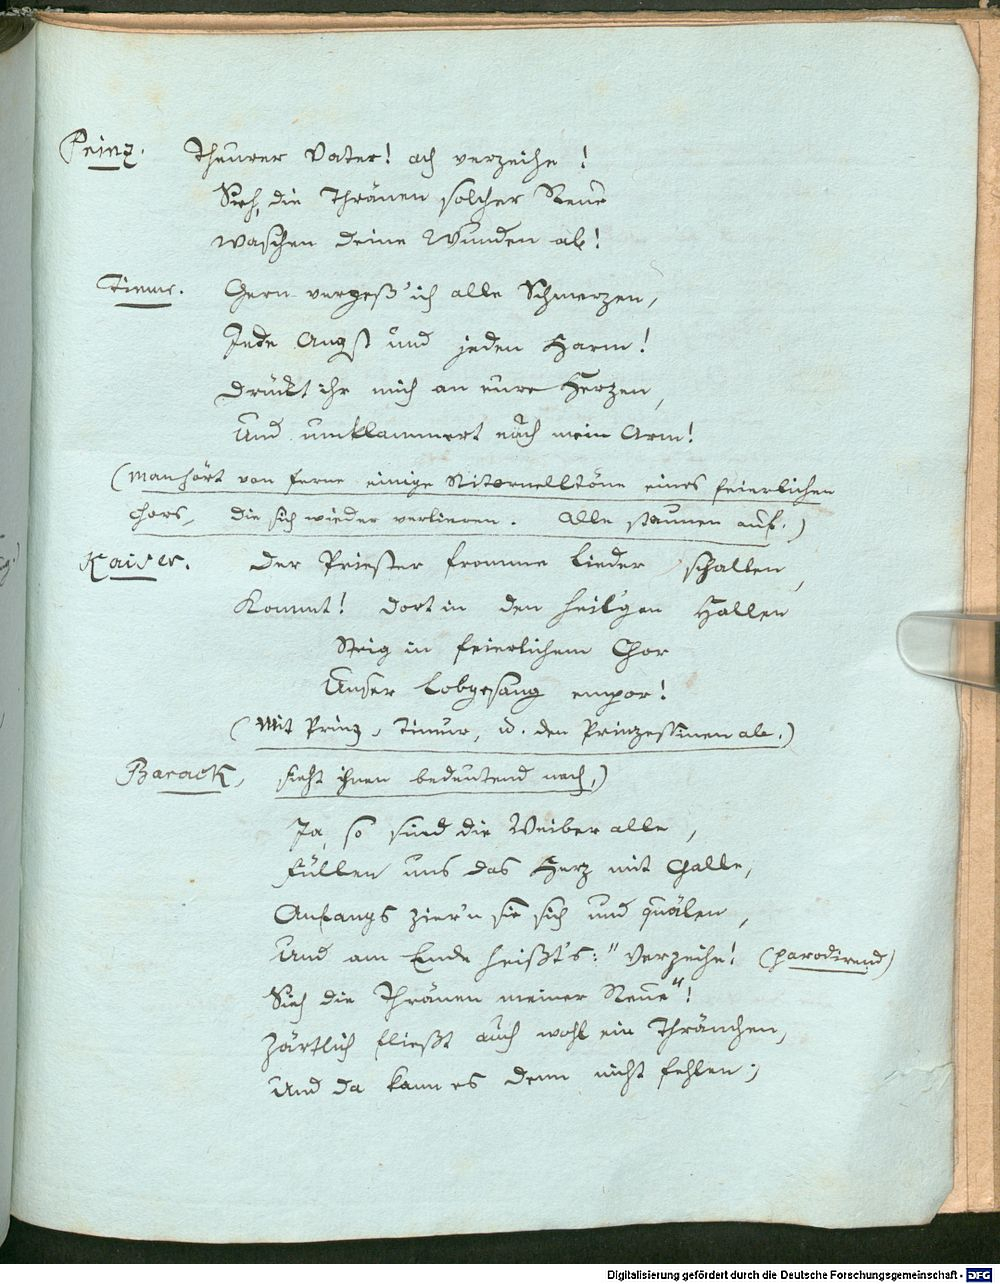 Prinz. Theurer Vater! ach verzeihe!
Sieh, die Thränen solcher Reue
waschen deine Wunden ab!
Timur. Gern vergeß' ich alle Schmerzen,
Jede Angst und jeden Harm!
Drückt ihr mich an eure Herzen,
Und umklammert euch mein Arm!
(Man hört von ferne einige Ritornelltöne eines feierlichen
Chors, die sich wieder verlieren. Alle staunen auf.)
Kaiser. Der Priester fromme Lieder schallen,
Kommt! dort in den heil'gen Hallen
Steig in feierlichem Chor
Unser Lobgesang empor!
(Mit Prinz, Timur, u. den Prinzessinen ab.)
Barack, sieht ihnen bedeutend nach,)
Ja, so sind die Weiber alle,
Füllen uns das Herz mit Galle,
Anfangs zier'n sie sich und quälen,
Und am Ende heißt's: "Verzeihe! (parodirend)
Sieh die Thränen meiner Reue"!
Zärtlich fließt auch wohl ein Thränchen,
Und da kann es denn nicht fehlen;
Digitalisierung gefördert durch die Deutsche Forschungsgemeinschaft - DFG